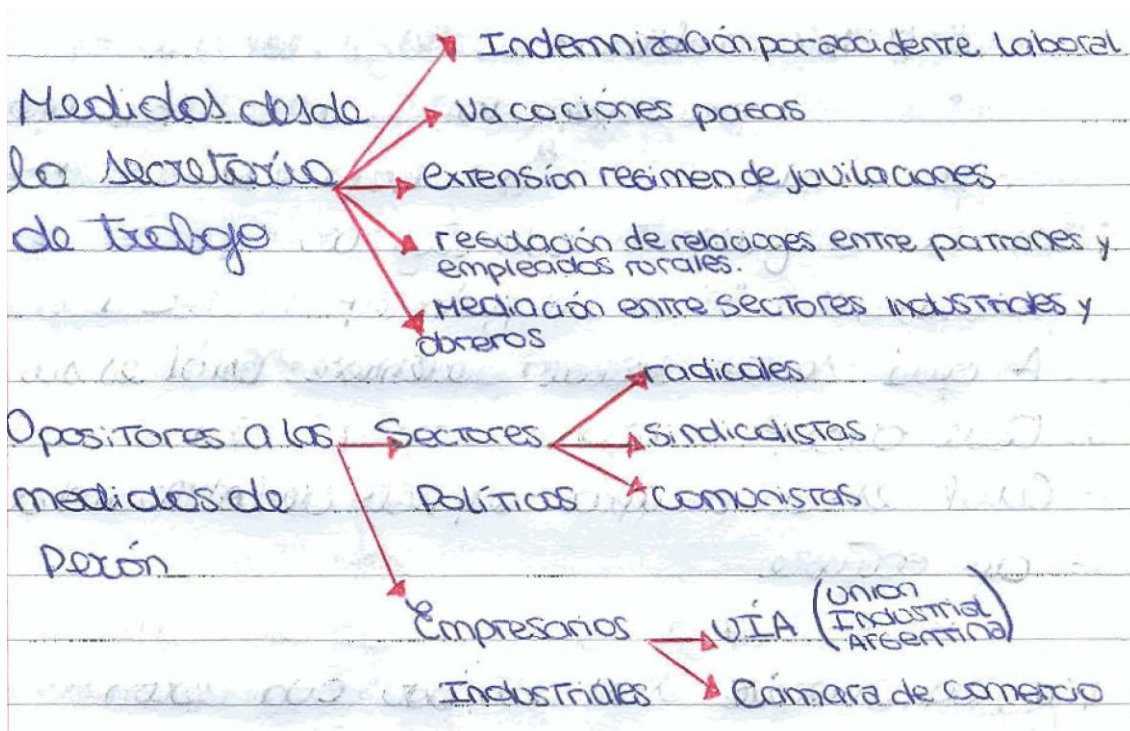 Medidas desde
la secretaria
de trabajo
Indemnización por accidente laboral
Vacaciónes pagas
extensión regimen de jovilaciones
regulación de relaciones entre patrones y
empleados rorales.
Mediación entre sectores industriales y
obreros
Opositores a las
medidas de
Perón
Sectores
Políticos
radicales
Sindicalistas
Comunistas
Empresarios
Industriales
UÍA (Union
Industrial
Argentina)
Cámara de comercio